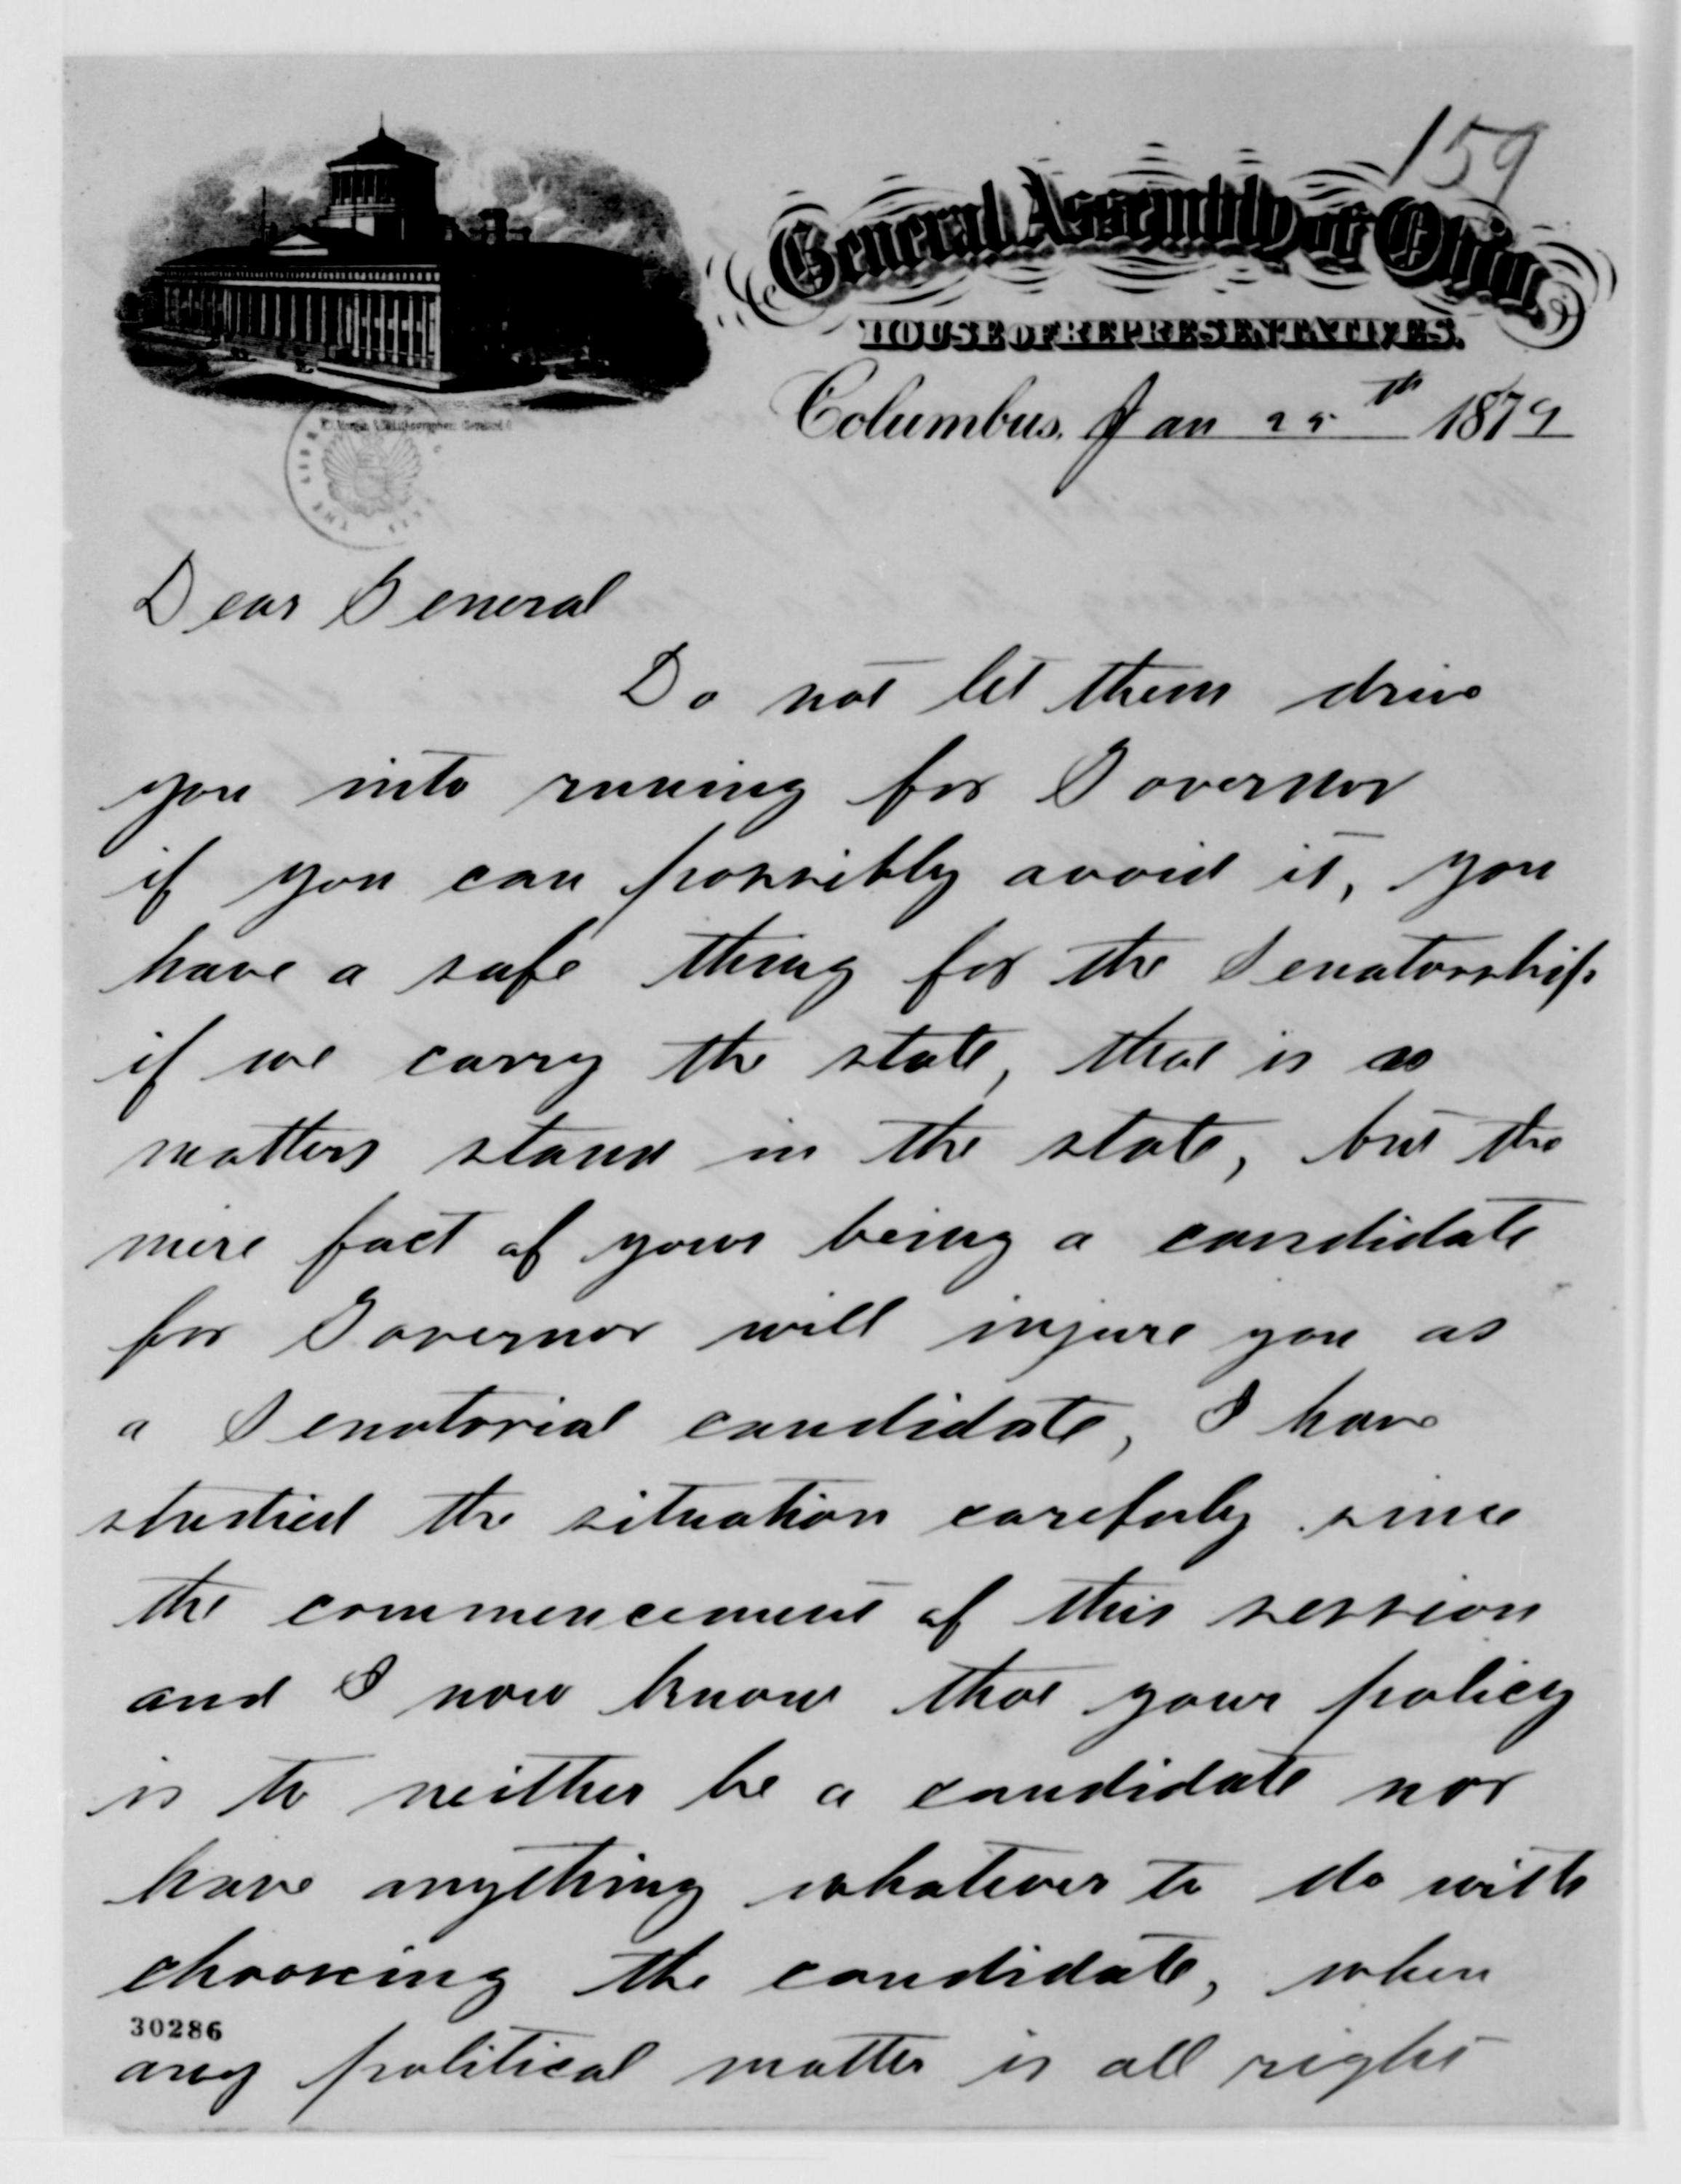 159
General Assembly of Ohio
HOUSE OF REPRESENTATIVES.
Columbus, Jan 25th 1879
Dear General
Do not let them drive
you into runing for Governor
if you can possibly avoid it, you
have a safe thing for the Senatorship
if we carry the state, that is as
matters stand in the state, but the
mere fact of your being a candidate
for Governor will injure you as
a Senatorial candidate, I have
studied the situation carefuly since
the commencement of this session
and I now know that your policy
is to neither be a candidate nor
have anything whatever to do with
choosing the candidate, when
30286
any political matter is all right